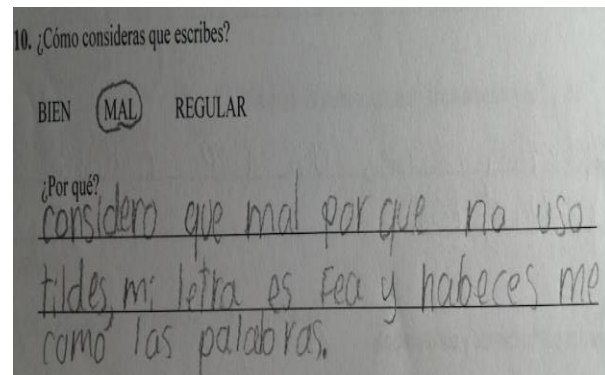 10. ¿Cómo consideras que escribes?
BIEN MAL REGULAR
¿Por qué?
considero que mal por que no uso
tildes, mi letra es Fea y habeces me
como las palabras.